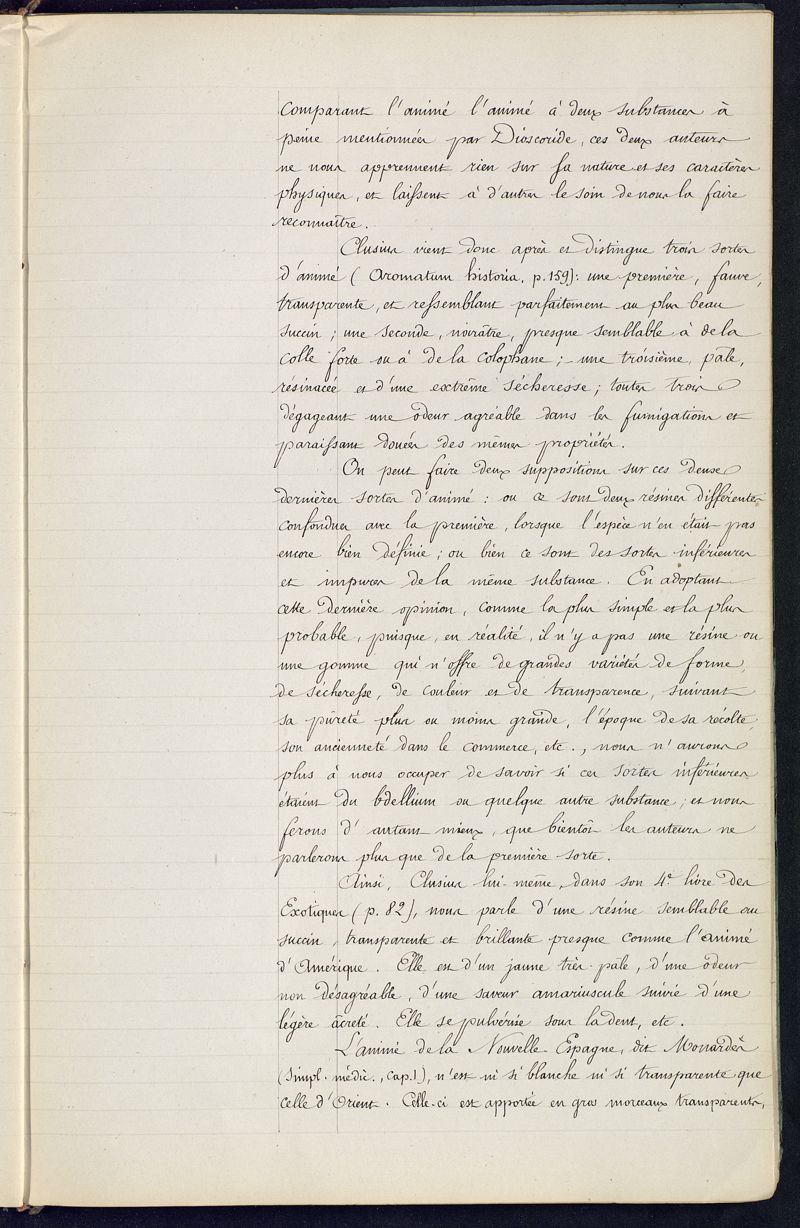 comparant l'animé l'animé à deux substances à
peine mentionnées par Dioscoride, ces deux auteurs
ne nous apprennent rien sur sa nature et ses caractères
physiques, et laissent à d'autres le soin de nous la faire
reconnaître.
Clusius vient donc après et distingue trois sortes
d'animé (Aromatum historia, p. 159): une première, fauve,
transparente, et ressemblant parfaitement au plus beau
succin ; une seconde, noirâtre, presque semblable à de la
colle forte ou à de la colophane ; une troisième, pâle,
résinacée et d'une extrême sécheresse ; toutes trois
dégageant une odeur agréable dans les fumigations et
paraissant douées des mêmes propriétés.
On peut faire deux suppositions sur ces deuse
dernières sortes d'animé : ou ce sont deux résines différentes
confondues avec la première, lorsque l'espèce n'en était pas
encore bien définie ; ou bien ce sont des sortes inférieures
et impures de la même substance. En adoptant
cette dernière opinion, comme la plus simple et la plus
probable, puisque, en réalité, il n'y a pas une résine ou
une gomme qui n'offre de grandes variétés de forme,
de sécheresse, de couleur et de transparence, suivant
sa pûreté plus ou moins grande, l'époque de sa récolte,
son ancienneté dans le commerce, etc., nous n'aurons
plus à nous occuper de savoir si ces sortes inférieures
étaient du bdellium ou quelque autre substance ; et nous
ferons d'autant mieux, que bientôt les auteurs ne
parlerons plus que de la première sorte.
Ainsi, Clusius lui-même, dans son 4e livre des
Exotiques (p. 82), nous parle d'une résine semblable au
succin, transparente et brillante presque comme l'animé
d'Amérique. Elle est d'un jaune très-pâle, d'une odeur
non désagréable, d'une saveur amariuscule suivie d'une
légère âcreté. Elle se pulvérise sous la dent, etc.
L'animé de la Nouvelle-Espagne, dit Monardès
(Simpl. médic., cap. 1), n'est ni si blanche ni si transparente que
celle d'Orient. Celle-ci est apportée en gros morceaux transparents,